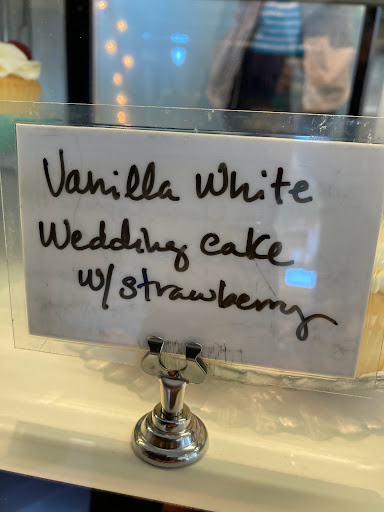 Vanilla White
Wedding Cake
w/ strawberry